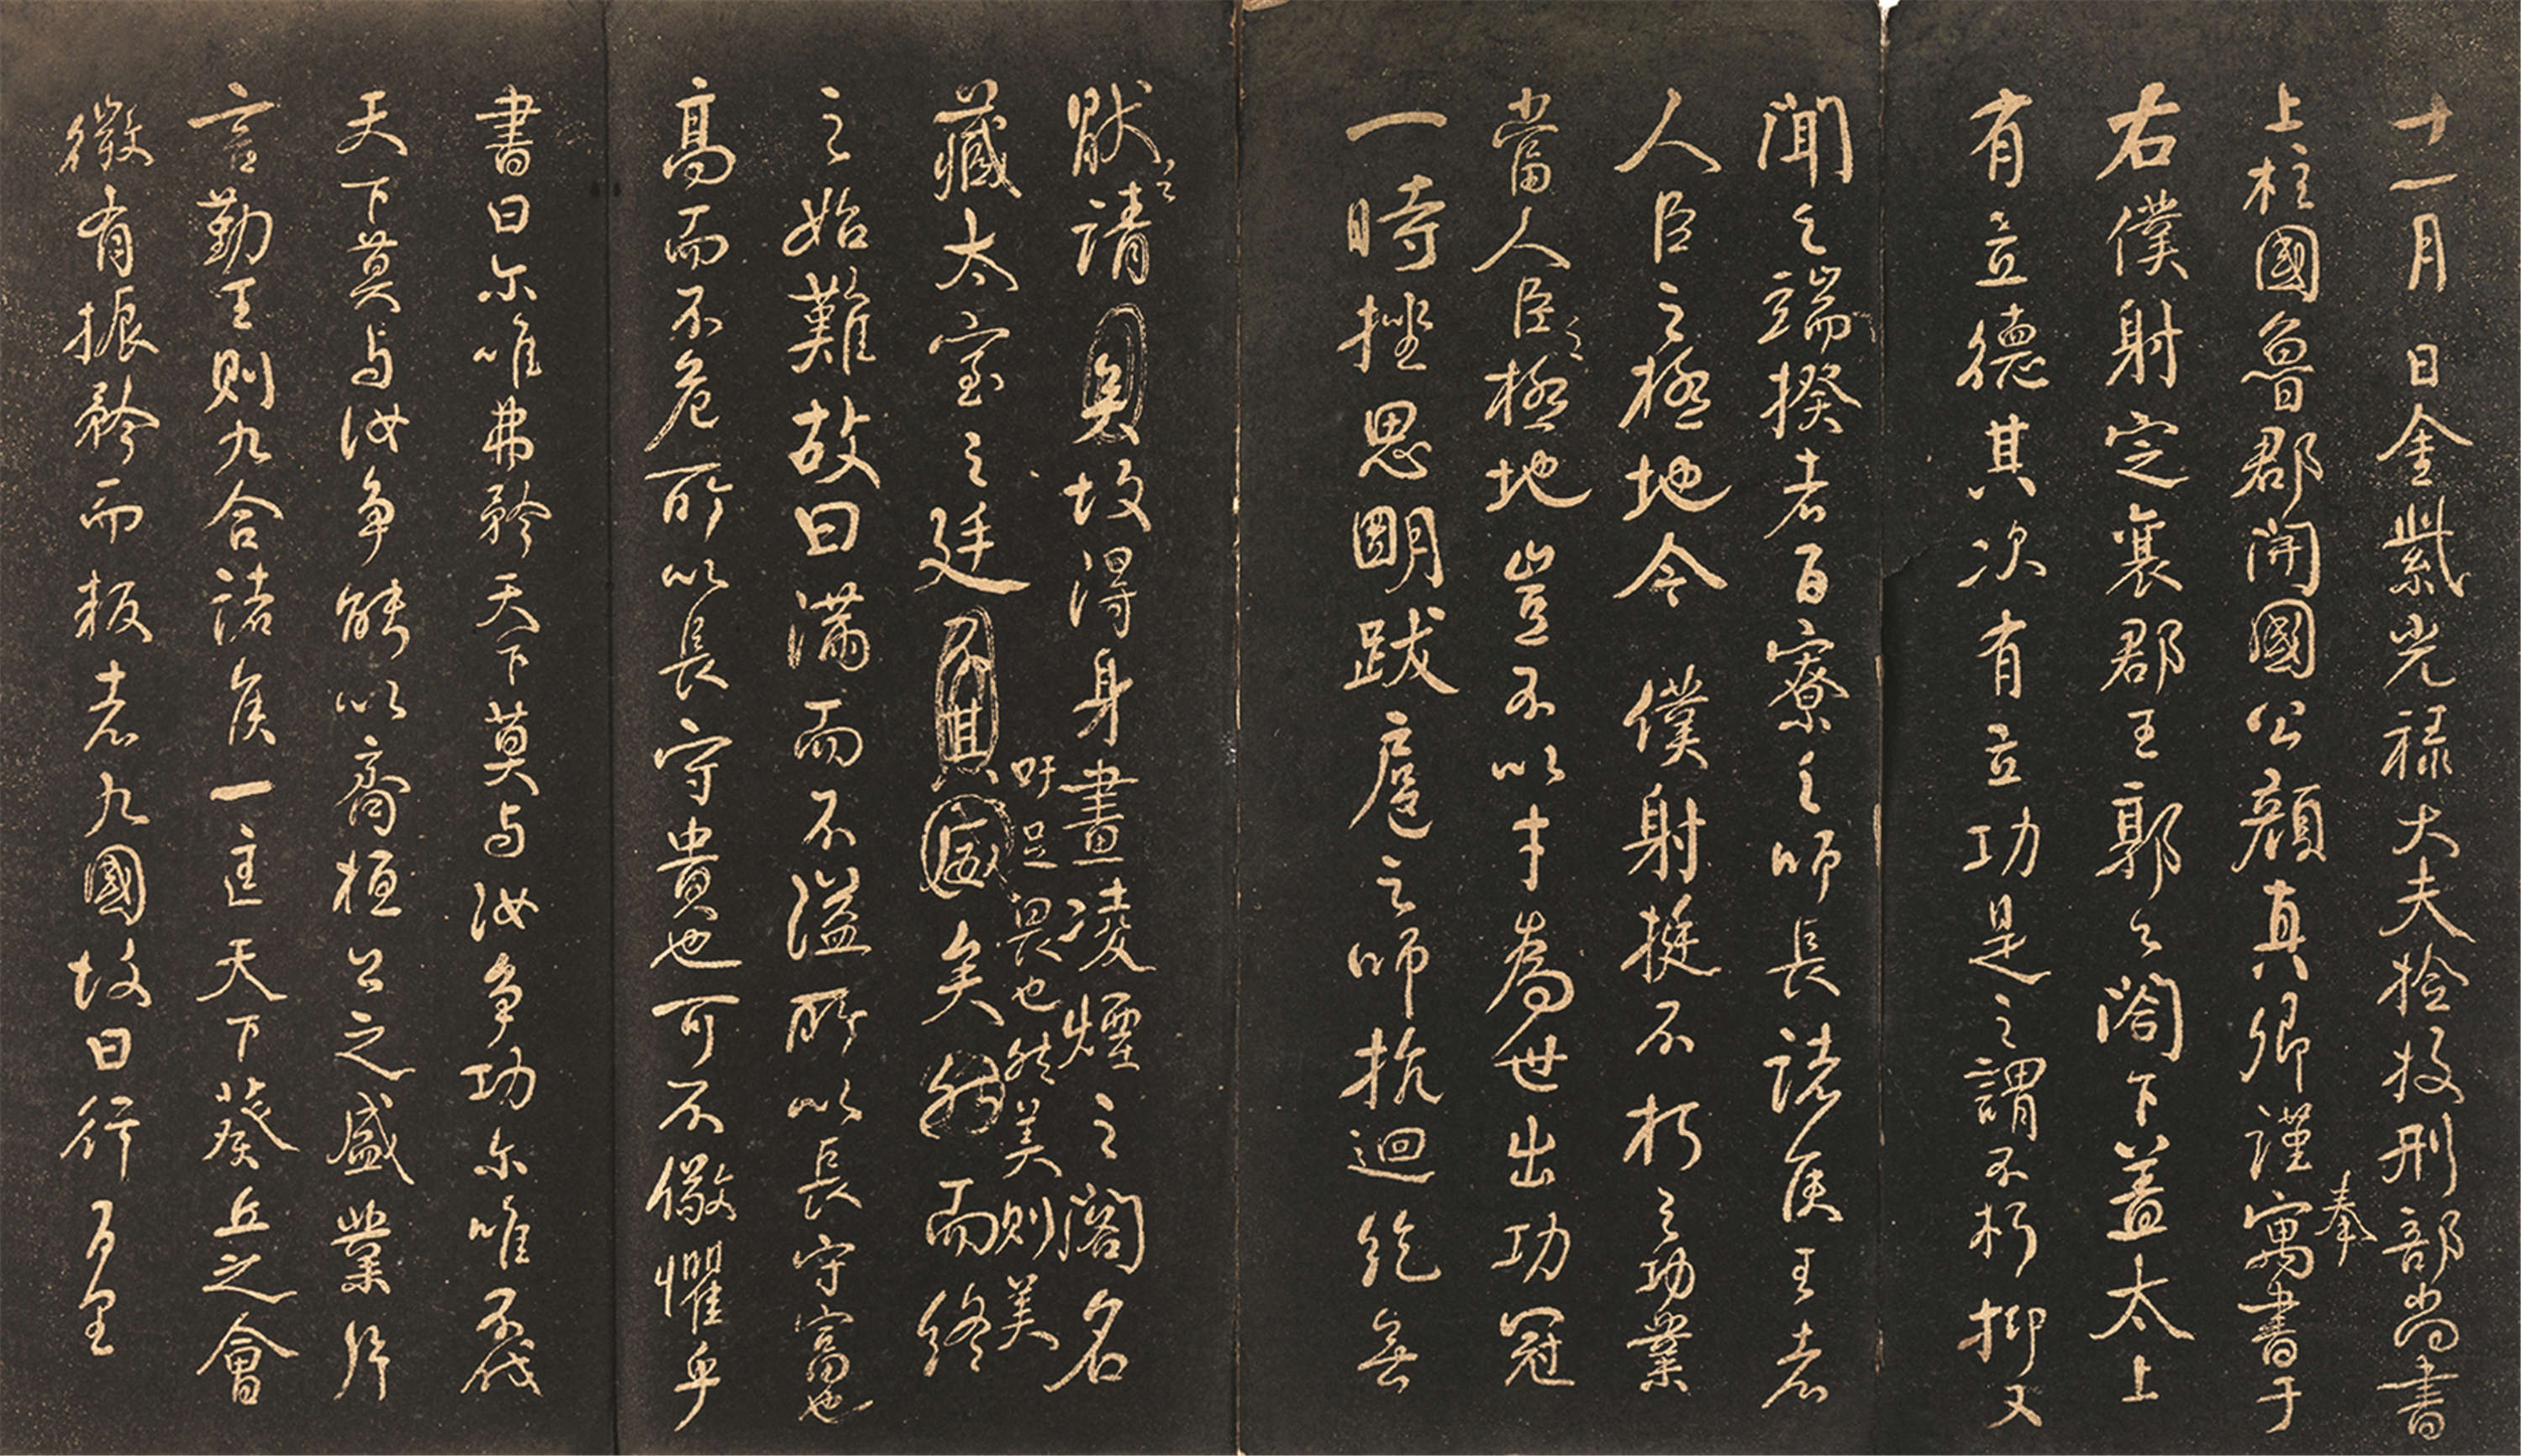 十一月 日金紫光禄大夫捡挍刑部尚書
上柱國魯郡開國公顔真卿謹奉寓書于
右僕射定襄郡王郭公閤下盖太上
有立德其次有立功是之謂不朽抑又
聞之端揆者百寮之師長諸侯王者
人臣之極地今 僕射挺不朽之功業
當人臣之極地豈不以才為世出功冠
一時挫思明跋扈之師抗迴紇無
猒之請故得身畫凌煙之閣名
藏太室之廷
吁足畏也然美則美
矣而終
之始難故曰满而不溢所以長守富也
高而不危所以長守貴也可不儆懼乎
書曰尔唯弗矜天下莫与汝争功尔唯不伐
天下莫与汝争能以齊桓公之盛業片
言勤王則九合諸侯一匡天下葵丘之會
微有振矜而叛者九國故曰行百里